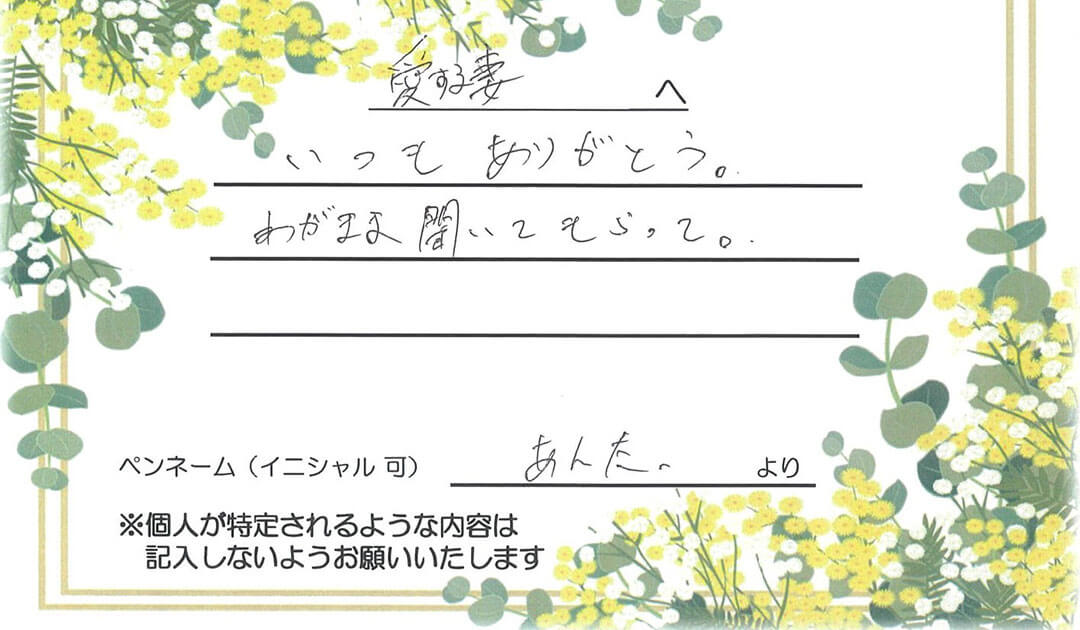 愛する妻 へ
いつも ありがとう。
わがまま聞いてもらって。
ペンネーム（イニシャル 可） あんた。 より
※個人が特定されるような内容は
記入しないようお願いいたします